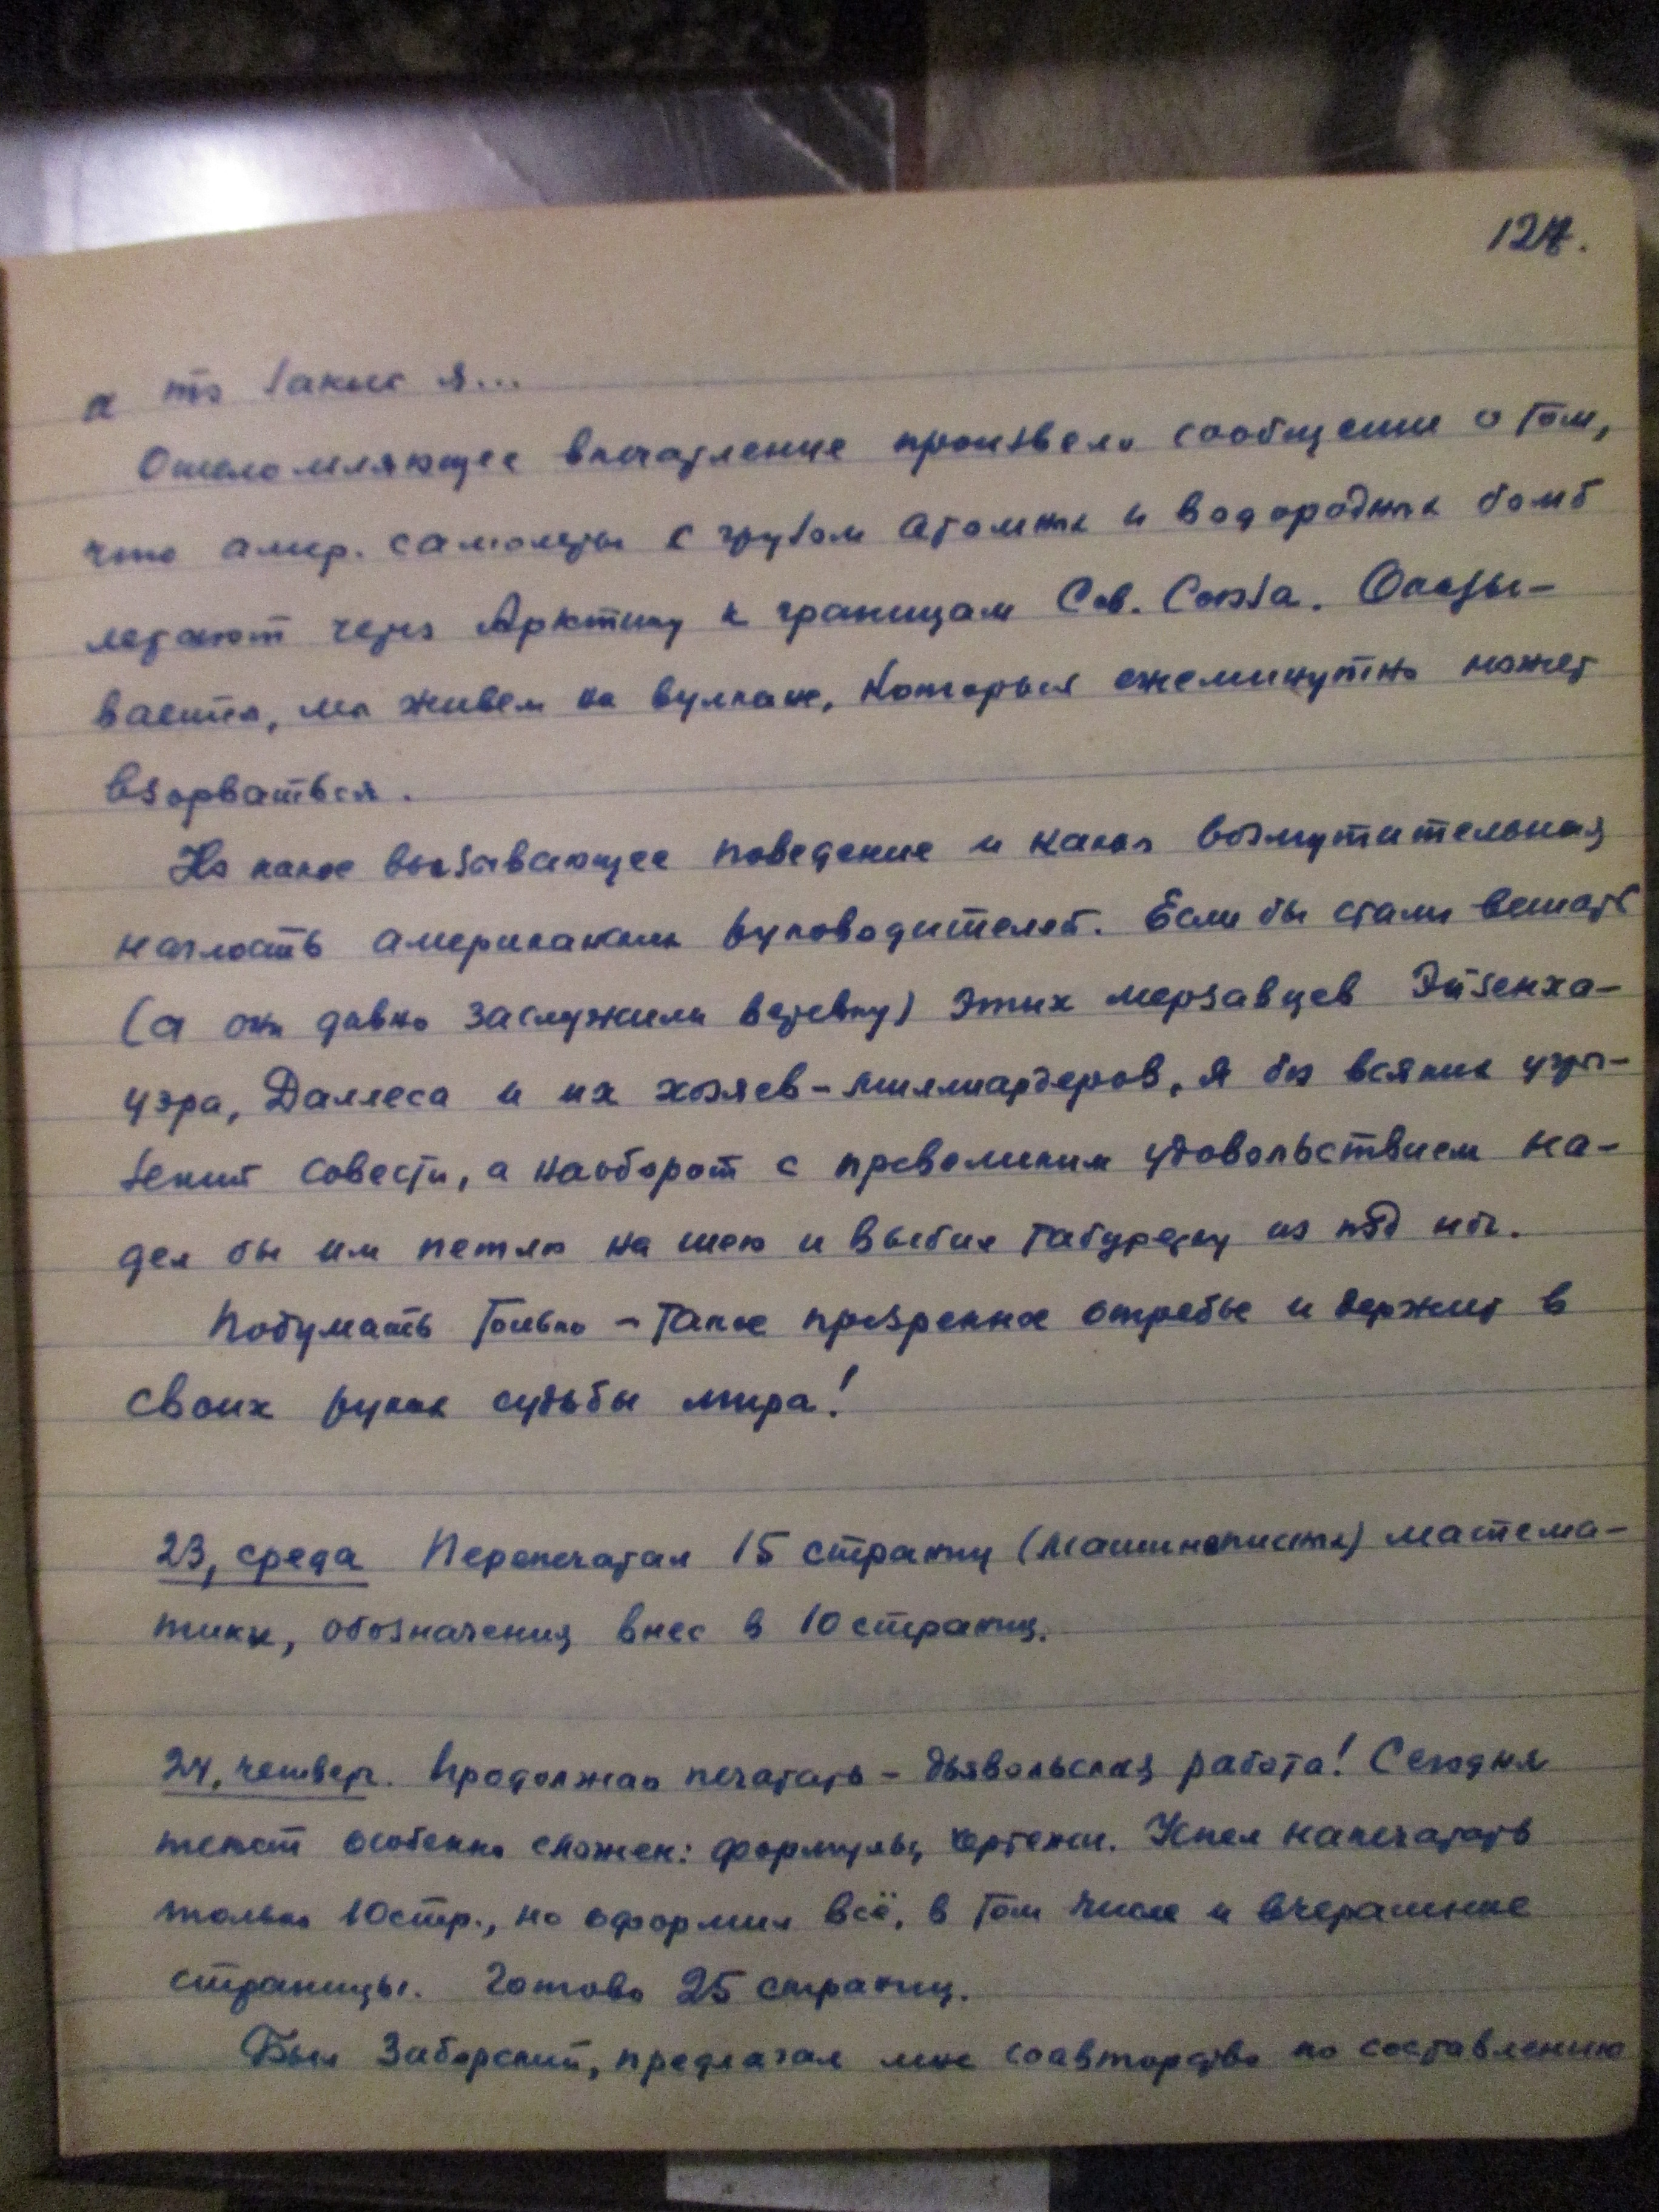 127.
а то закис я...
Ошеломляющее впечатление произвело сообщение о том,
что амер. самолеты с грузом атомных и водородных бомб
летают через Арктику к границам Сов. Союза. Оказы-
вается, мы живем на вулкане, который ежеминутно может
взорваться.
Но какое вызывающее поведение и какая возмутительная
наглость американских руководителей. Если бы стали вешать
(а они давно заслужили веревку) этих мерзавцев Эйзенха-
уэра, Даллеса и их хозяев-миллиардеров, я без всяких угры-
зений совести, а наоборот с превеликим удовольствием на-
дел бы им петлю на шею и выбил табуретку из под ног.
Подумать только - такое презренное отребье и держит в
своих руках судьбы мира!
23, среда Перепечатал 15 страниц (машинописных) матема-
тики, обозначения внес в 10 страниц.
24, четверг. Продолжаю печатать - дьявольская работа! Сегодня
текст особенно сложен: формулы, чертежи. Успел напечатать
только 10 стр., но оформил всё, в том числе и вчерашние
страницы. Готово 25 страниц.
Был Заборский, предлагал мне соавторство по составлению